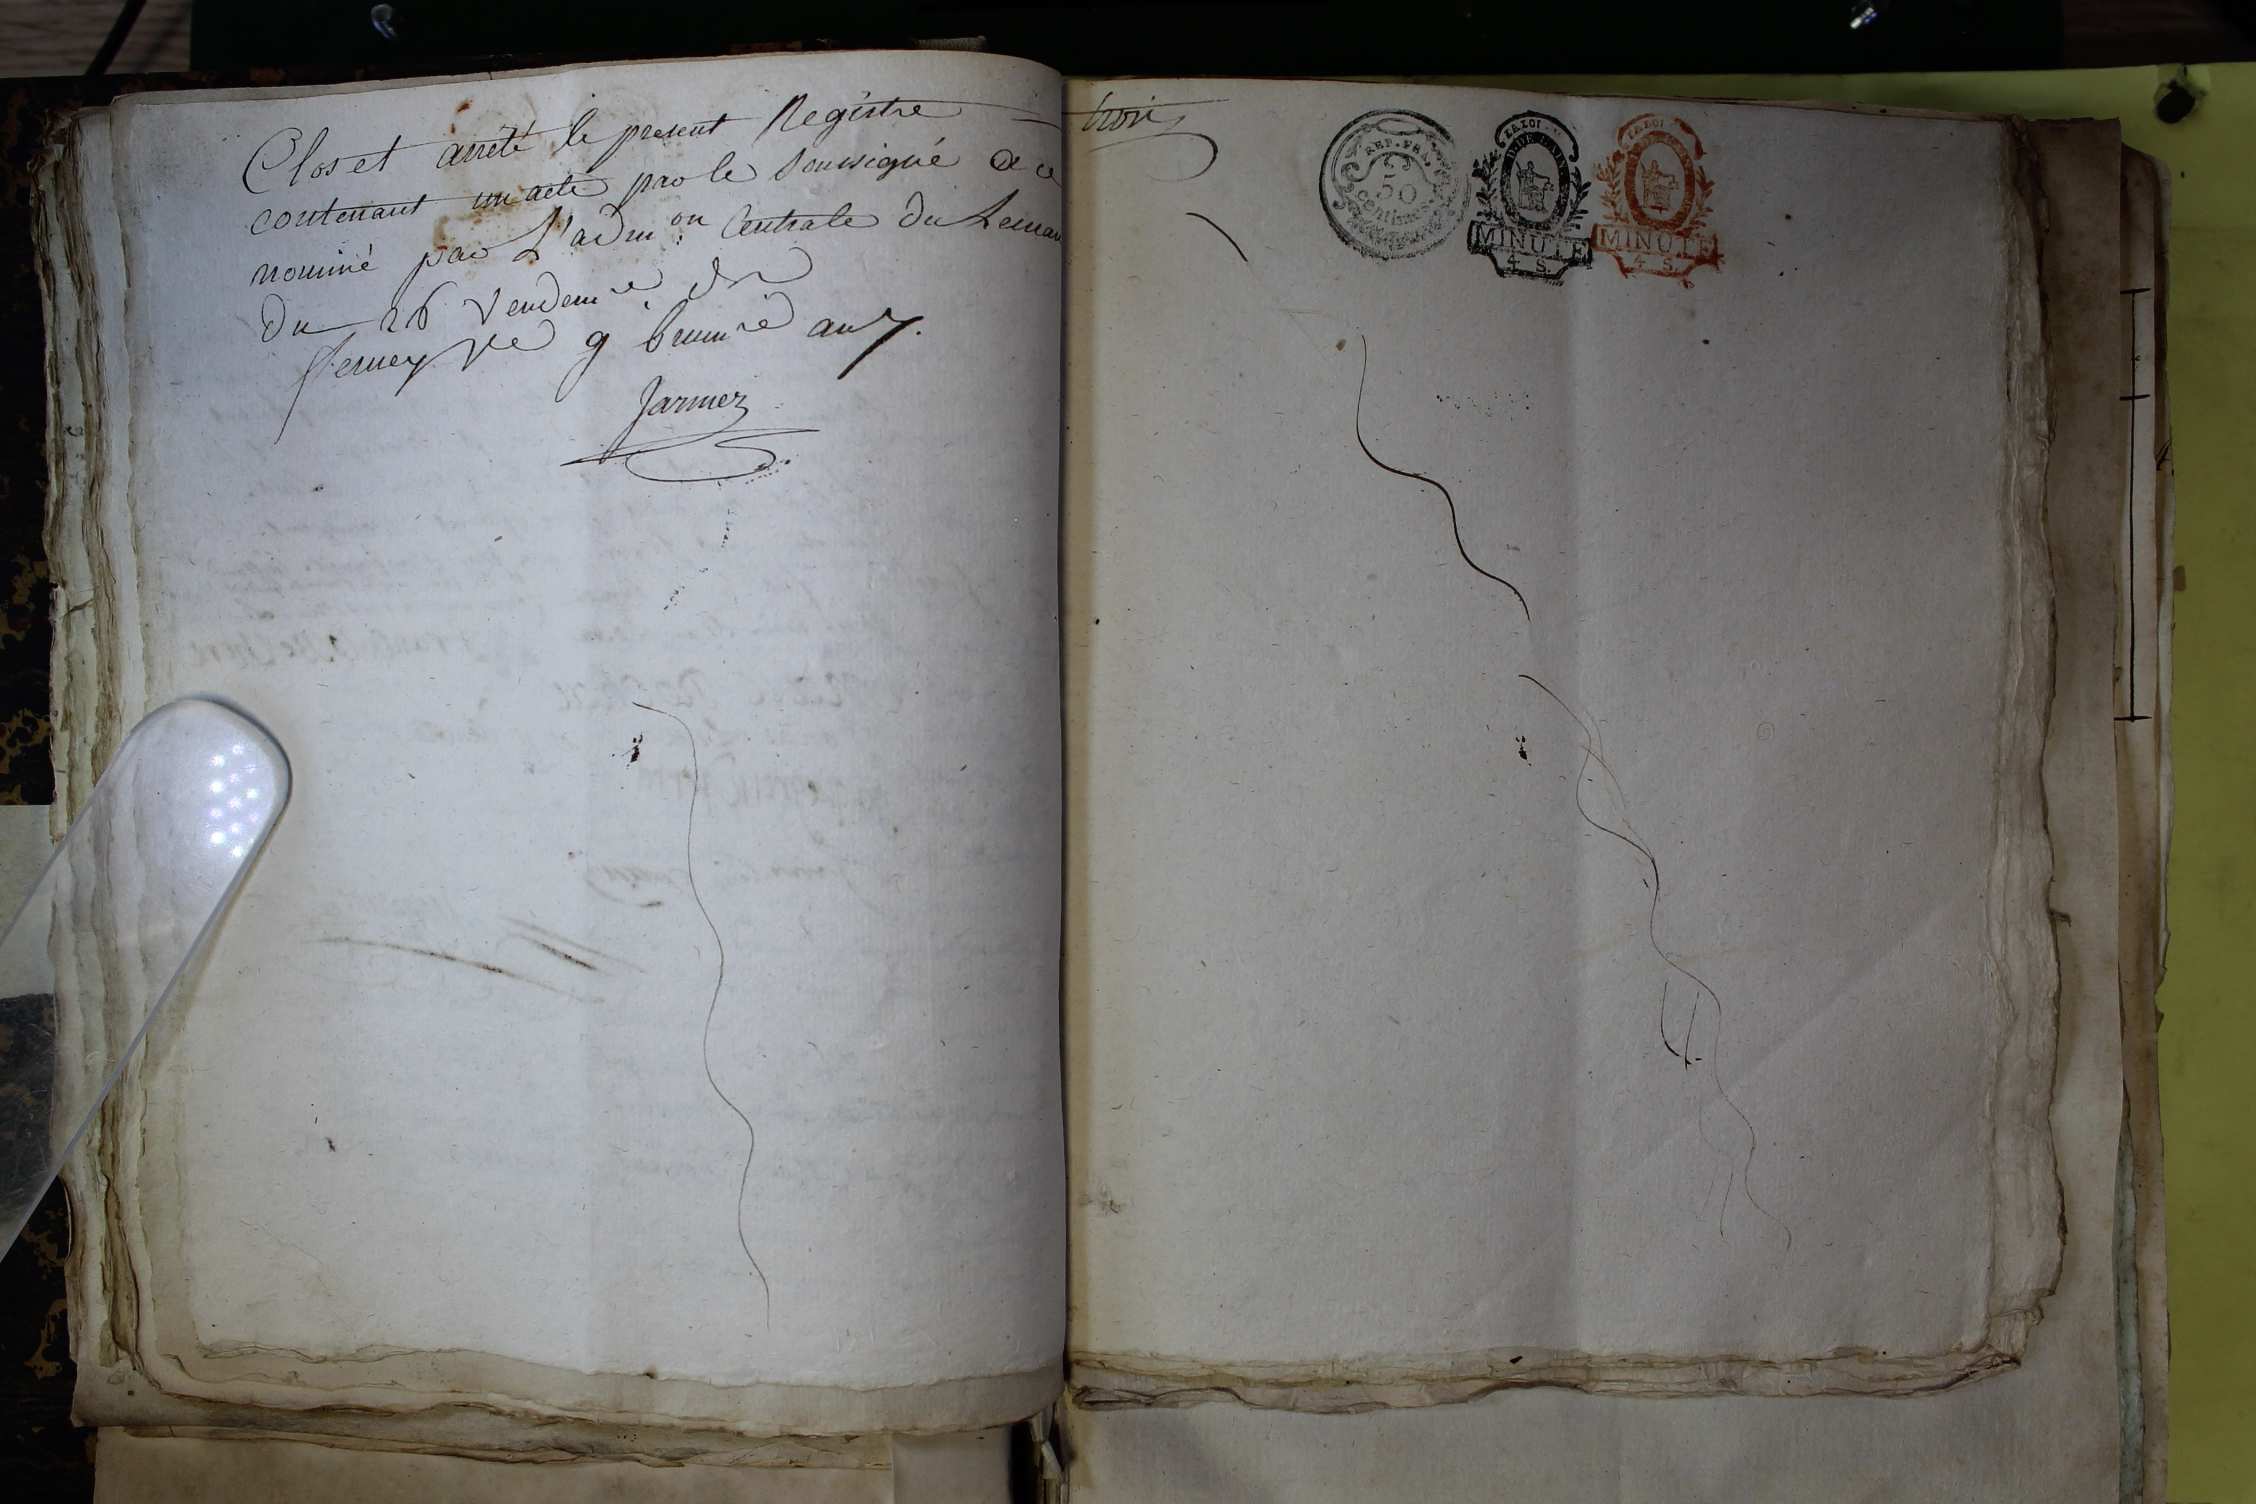 Clos et arrêté le present Registre
contenant un acte par le soussigné a ce
nommé par L'adm.on Centrale du Leman
du 26 Vendem.re dr
ferney V.e 9 brum.re an 7.
Jarmez
trois
REP. FRA.
50
Centimes
LA LOI
MINUTE
4 S
LA LOI
MINUTE
4 S